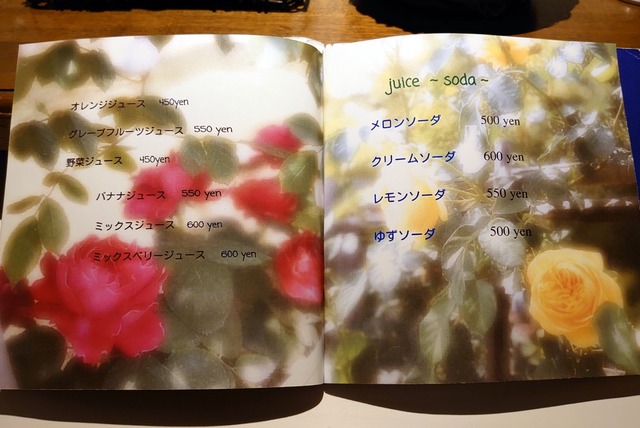 オレンジジュース 450yen
グレープフルーツジュース 550 yen
野菜ジュース 450yen
バナナジュース 550 yen
ミックスジュース 600 yen
ミックスベリージュース 600 yen
juice ~ soda ~
メロンソーダ 500 yen
クリームソーダ 600 yen
レモンソーダ 550 yen
ゆずソーダ 500 yen